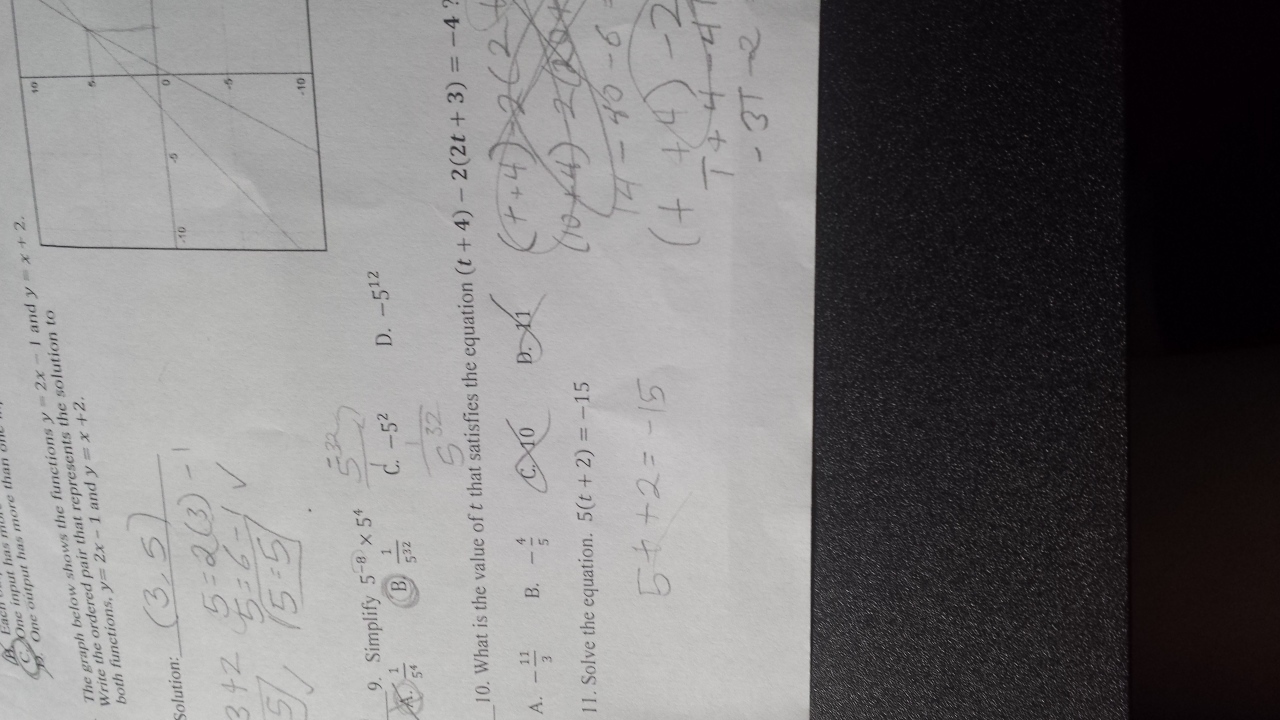 One input has more than one
One output has more than one
The graph below shows the functions y = 2x − 1 and y = x + 2.
Write the ordered pair that represents the solution to
both functions, y= 2x − 1 and y = x +2.
10
5
0
-5
-10
-5
-10
Solution: (3, 5)
3 + 2 5 = 2(3) - 1
5 5 = 6 - 1
5 = 5 √
9. Simplify 5⁻⁸ × 5⁴
5⁻³²
A. 1/5⁴ B. 1/5³² C. −5² D. −5¹²
1/5³²
10. What is the value of t that satisfies the equation (t + 4) − 2(2t + 3) = −4 ?
A. −11/3 B. −4/5 C. 10 D. 11
(t+4) - 2(2
(10+4) - 2(20+
14 - 40 - 6
(t + 4) - 2
T + 4 - 4T
-3T - 2
11. Solve the equation. 5(t + 2) = −15
5t + 2 = -15